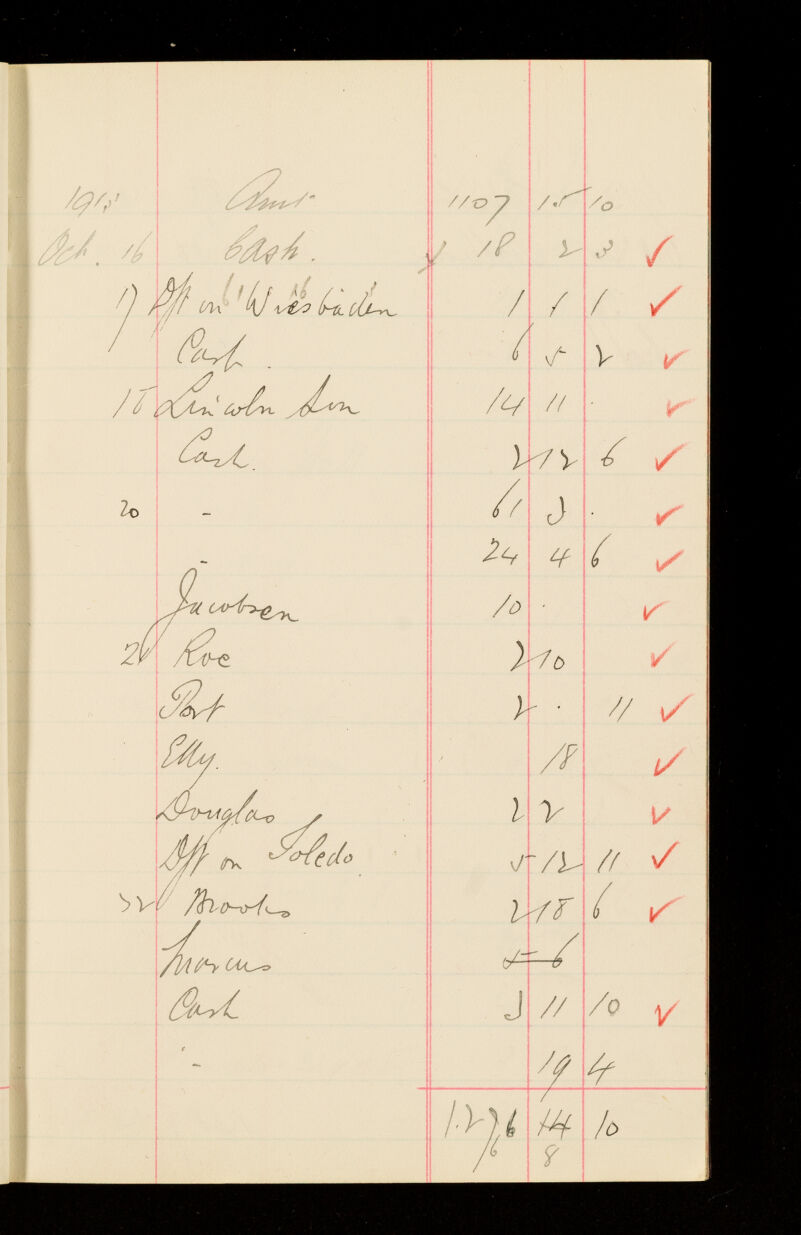 1913 Amt 1107 15 10
Oct. 16 Cash. 18 2 3 ✓
17 Dft on Wiesbaden 1 1 1 ✓
Cash . 6 5 2 ✓
18 Lincoln Son 14 11 . ✓
Cash. 2 12 6 ✓
20 - 61 3 . ✓
- 24 4 6 ✓
Jacobsen 10 . ✓
21 Roe 2 10 ✓
Port 2 . 11 ✓
Elly. 18 ✓
Douglas 2 2 ✓
Dft on Toledo 5 12 11 ✓
22 Brooks 2 18 6 ✓
Marcus 5 6
Cash 3 11 10 ✓
" - 19 4
1.276 14 10
6 8